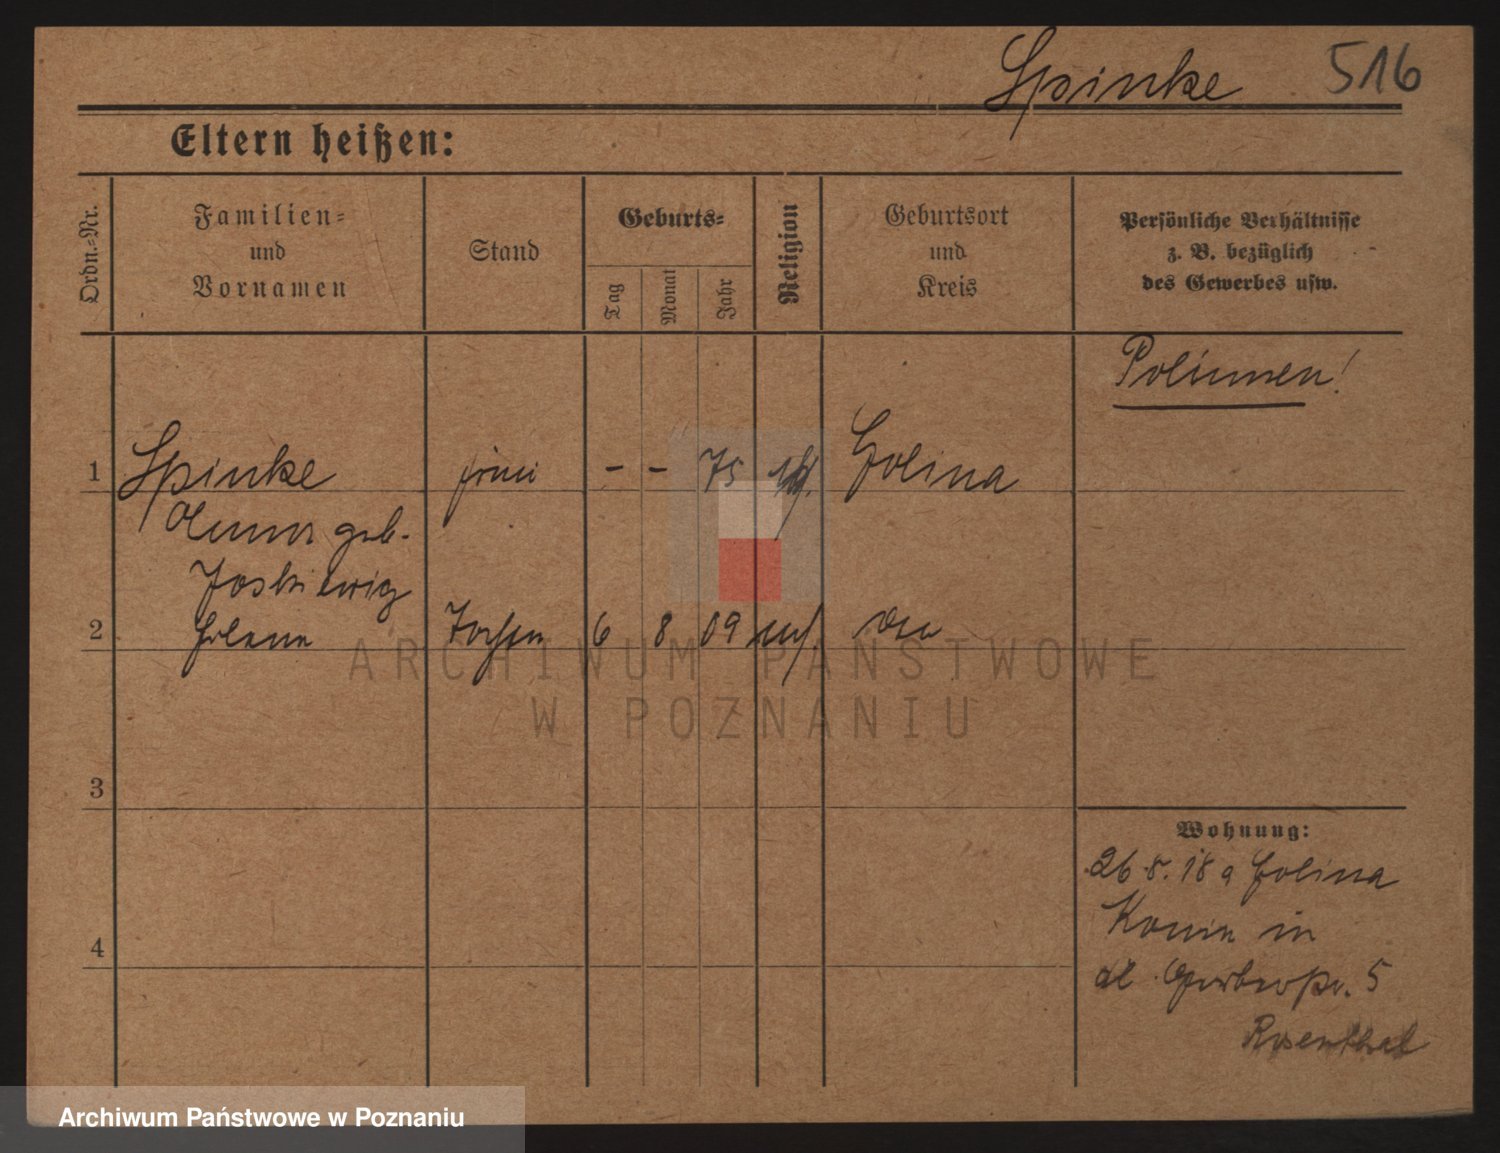 Spinke 516
Eltern heißen:
Ordn.=Nr.
Familien=
und
Vornamen
Stand
Geburts=
Tag
Monat
Jahr
Religion
Geburtsort
und
Kreis
Persönliche Verhältnisse
z. B. bezüglich
des Gewerbes usw.
Polinnen!
1 Spinke - - 75 Golina
geb.
2 Helene 6 8 09
3
4
Wohnung:
26.5.18 a Golina
Konin in
Gerberstr. 5
Rosenthal
ARCHIWUM PAŃSTWOWE
W POZNANIU
Archiwum Państwowe w Poznaniu